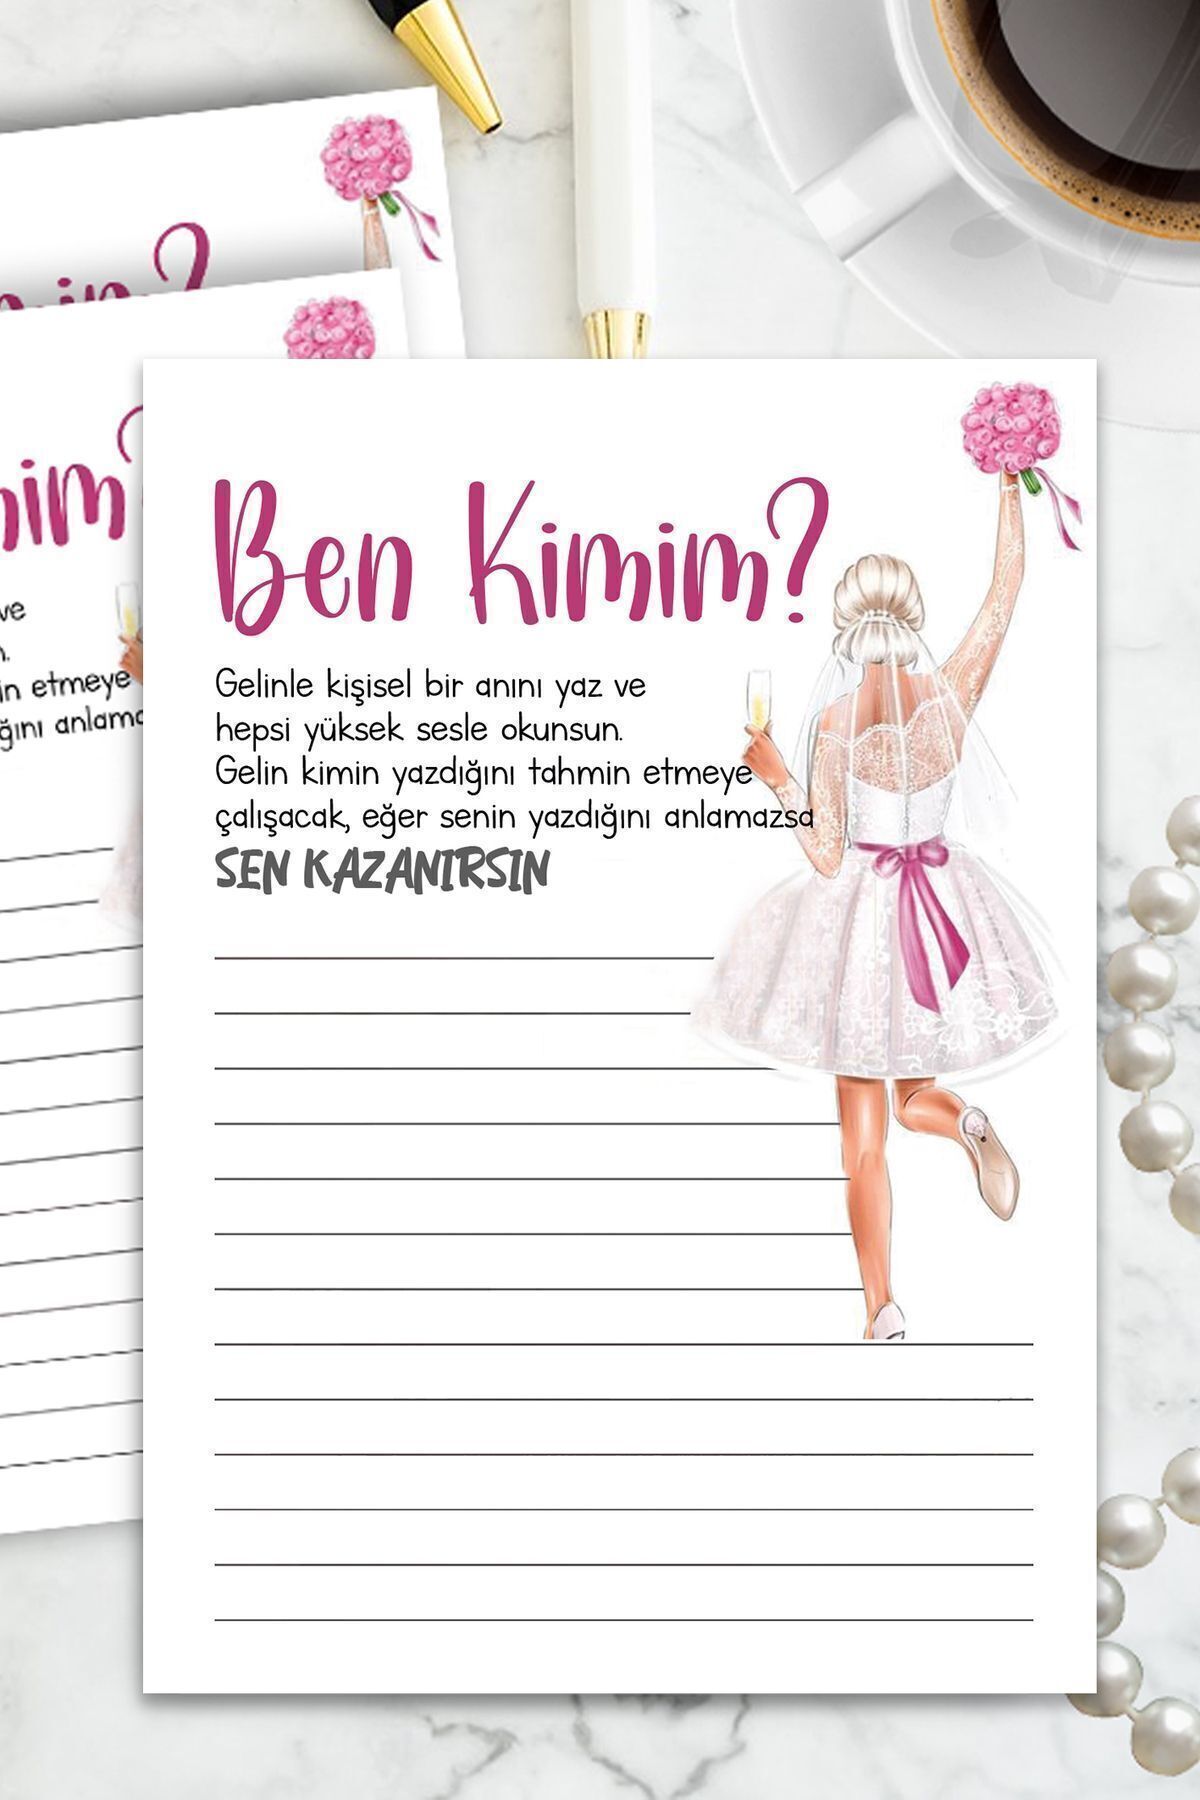 Ben Kimim?
Gelinle kişisel bir anını yaz ve
hepsi yüksek sesle okunsun.
Gelin kimin yazdığını tahmin etmeye
çalışacak, eğer senin yazdığını anlamazsa
SEN KAZANIRSIN
ve
in etmeye